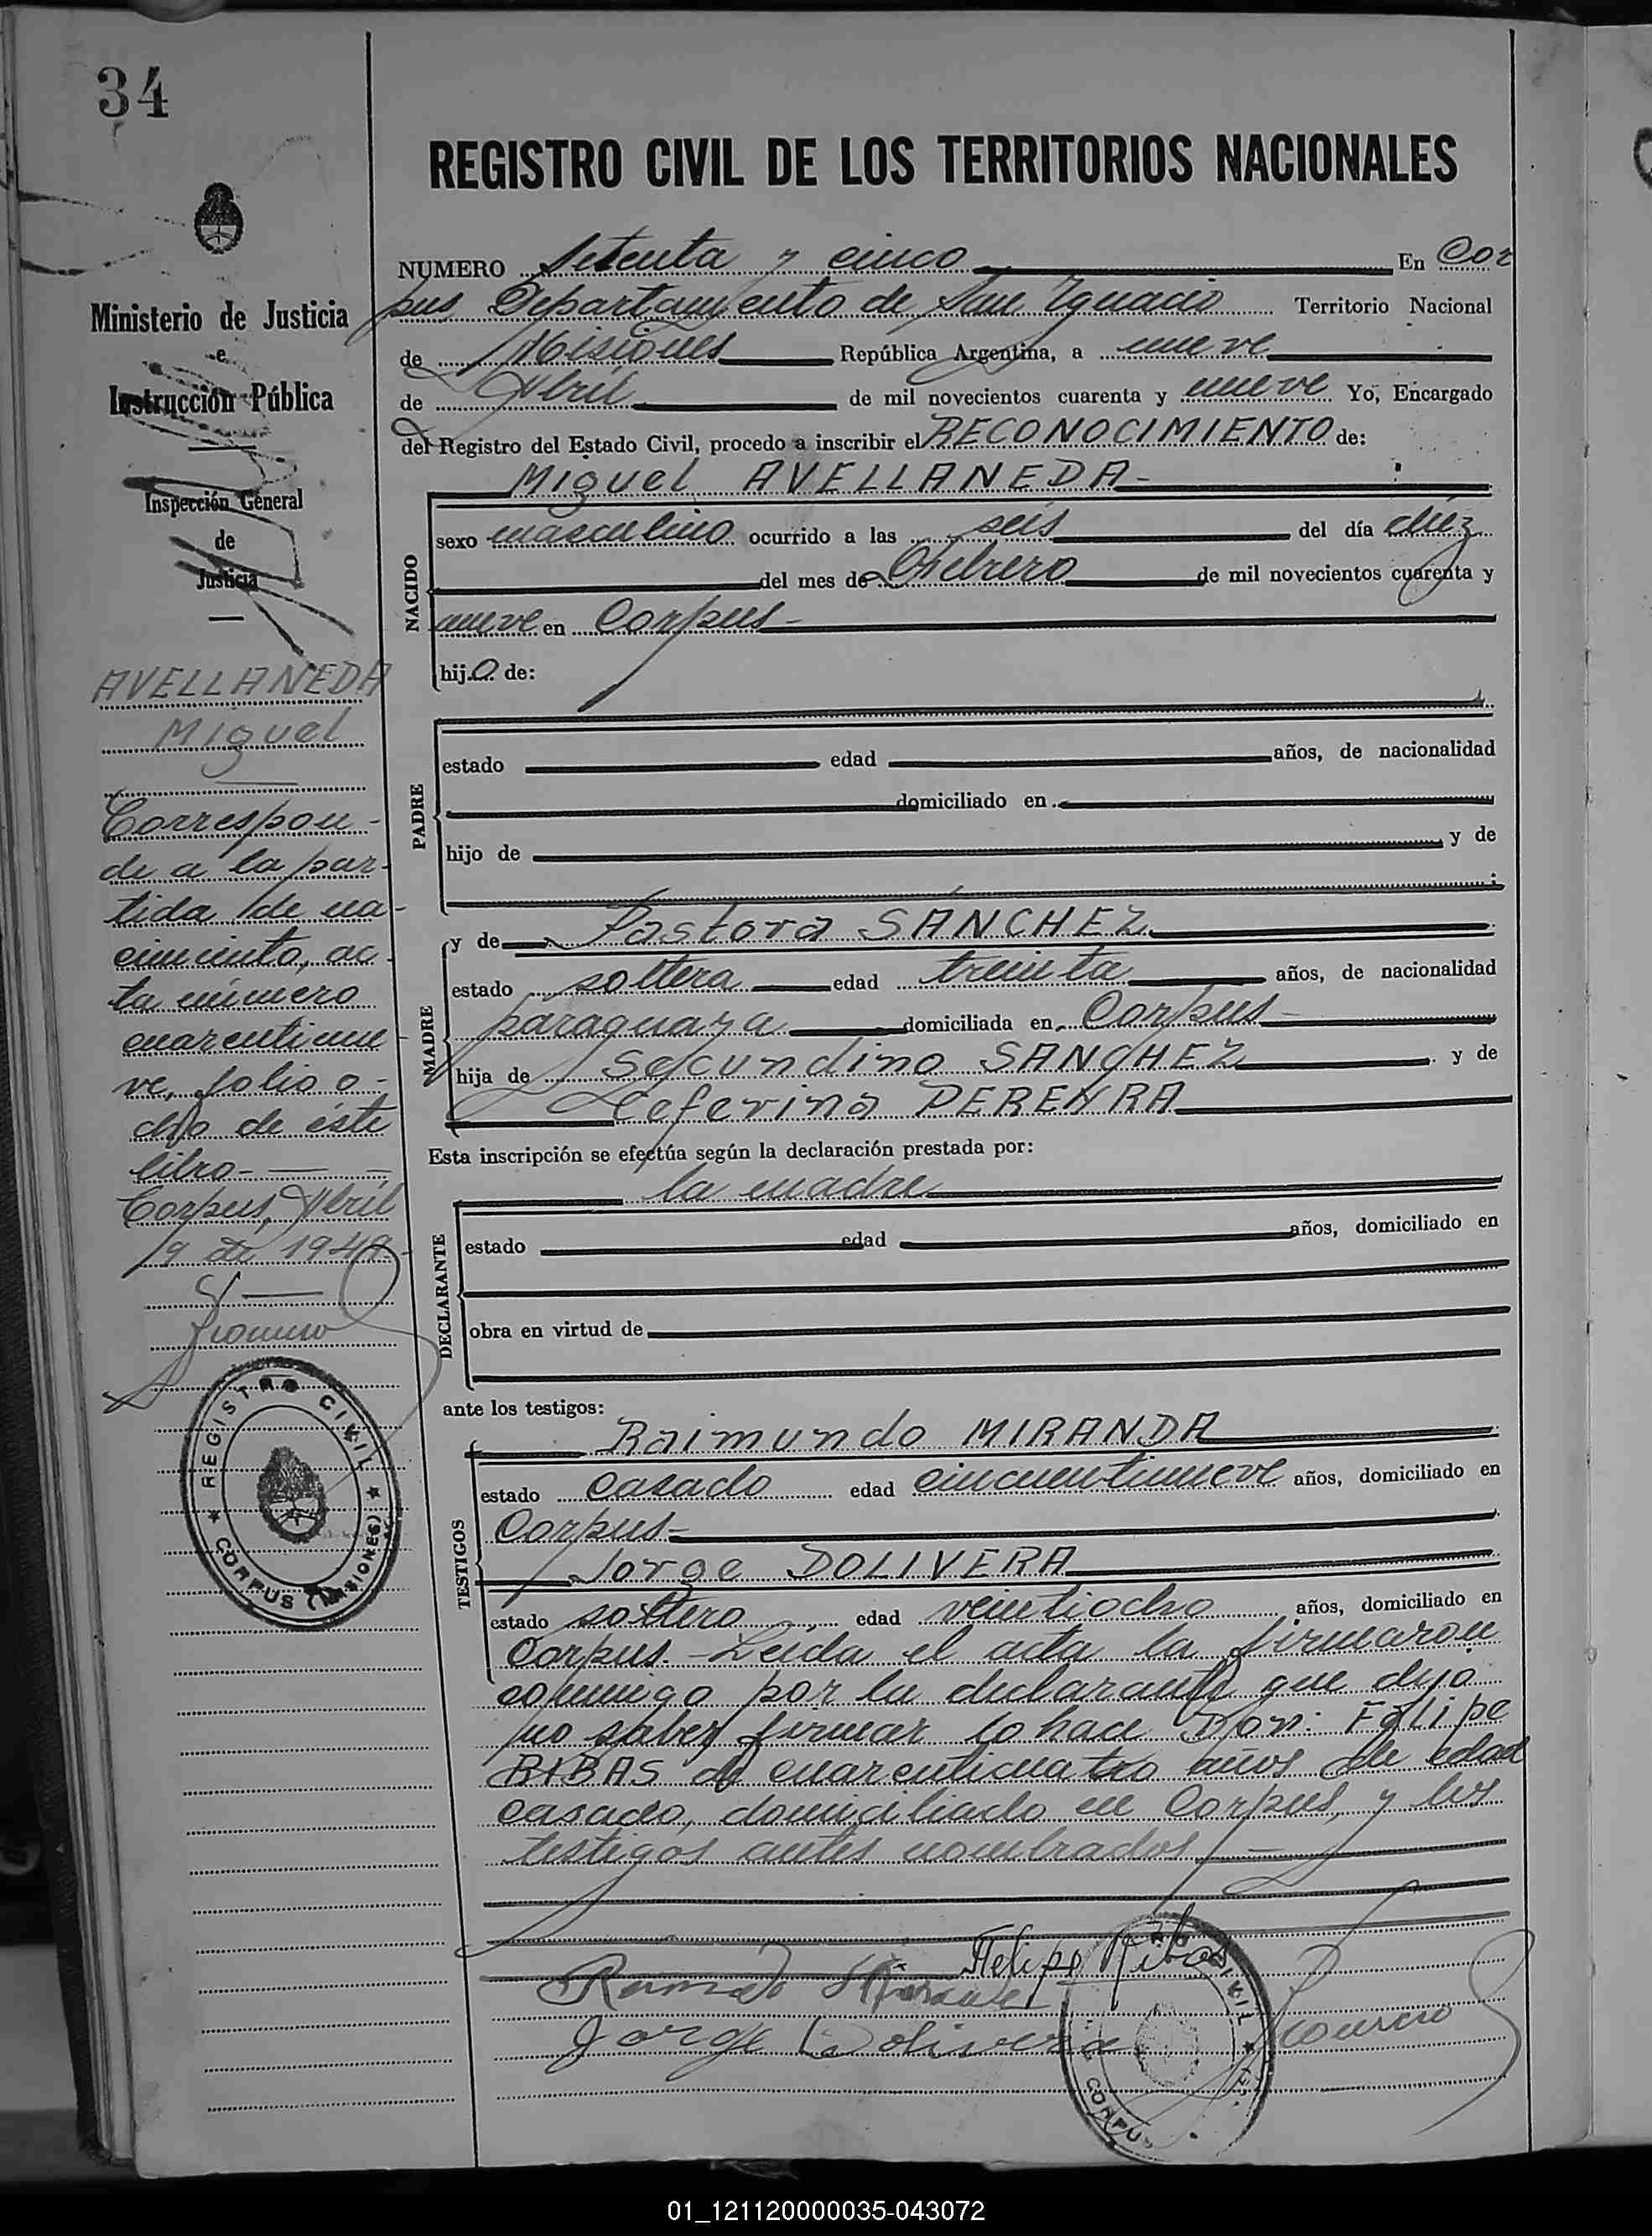 34
REGISTRO CIVIL DE LOS TERRITORIOS NACIONALES
Ministerio de Justicia
e
Instrucción Pública
Inspección General
de
Justicia
AVELLANEDA
Miguel
Correspon-
de a la par-
tida de na-
cimiento, ac-
ta número
cuarentinue-
ve, folio o-
cho de éste
libro-
Corpus, Abril
9 de 1949-
REGISTRO CIVIL
CORPUS (MISIONES)
NUMERO Setenta y cinco En Cor
pus Departamento de San Ygnacio Territorio Nacional
de Misiones República Argentina, a nueve
de Abril de mil novecientos cuarenta y nueve Yo, Encargado
del Registro del Estado Civil, procedo a inscribir el RECONOCIMIENTO de:
Miguel AVELLANEDA-
NACIDO
sexo masculino ocurrido a las seis del día diez
del mes de Febrero de mil novecientos cuarenta y
nueve en Corpus-
hijo de:
PADRE
estado edad años, de nacionalidad
domiciliado en
hijo de y de
MADRE
y de Pastora SANCHEZ
estado soltera edad treinta años, de nacionalidad
paraguaya domiciliada en Corpus-
hija de Secundino SANCHEZ y de
Ceferina PEREYRA
Esta inscripción se efectúa según la declaración prestada por:
la madre
DECLARANTE
estado edad años, domiciliado en
obra en virtud de
ante los testigos:
Raimundo MIRANDA
TESTIGOS
estado casado edad cincuentinueve años, domiciliado en
Corpus-
Jorge DOLIVERA
estado soltero edad veintiocho años, domiciliado en
Corpus.-Leída el acta la firmaron
conmigo por la declarante que dijo
no saber firmar lo hace Don: Felipe
RIBAS de cuarenticuatro años de edad
casado, domiciliado en Corpus, y los
testigos antes nombrados
Felipe Ribas
Jorge Dolivera
CIVIL
CORPUS
01_121120000035-043072